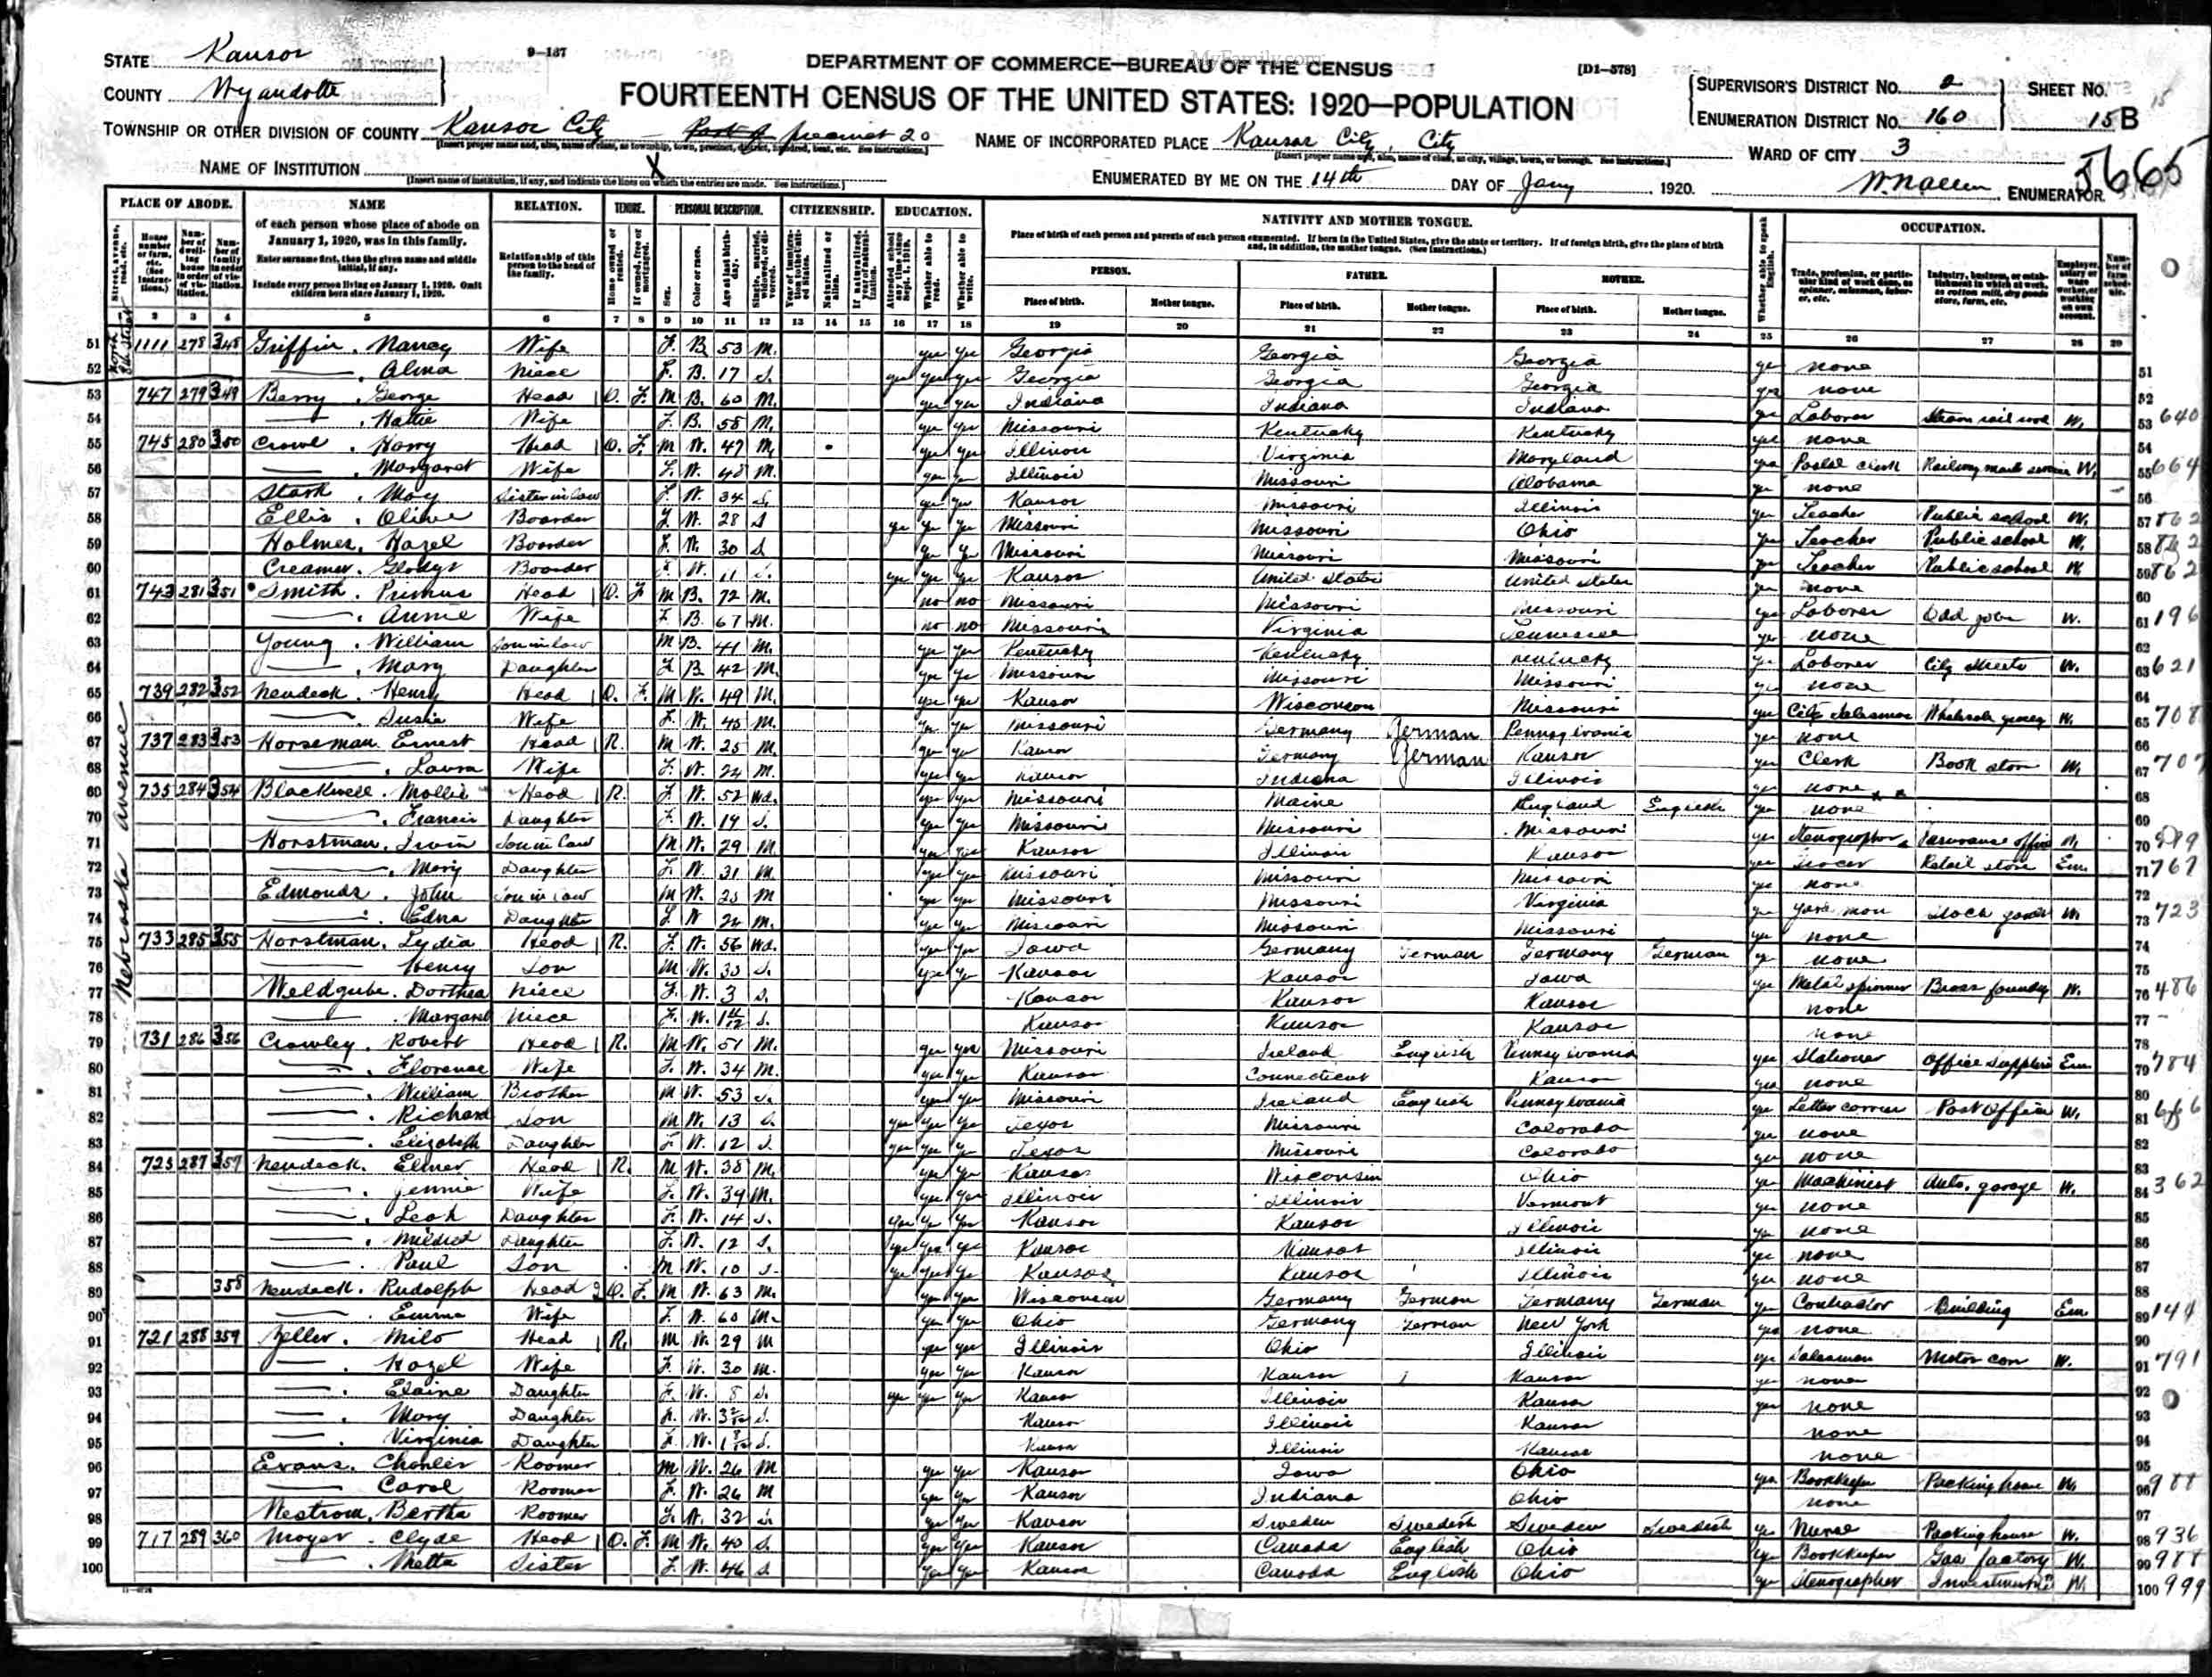 STATE Kansas
9-137
MyFamily.com
DEPARTMENT OF COMMERCE—BUREAU OF THE CENSUS
[D1-578]
COUNTY Wyandotte
FOURTEENTH CENSUS OF THE UNITED STATES: 1920—POPULATION
SUPERVISOR'S DISTRICT No. 2
SHEET No.
ENUMERATION DISTRICT No. 160
15 B
TOWNSHIP OR OTHER DIVISION OF COUNTY Kansas City — Part of precinct 20
NAME OF INCORPORATED PLACE Kansas City, City
WARD OF CITY 3
5665
NAME OF INSTITUTION X
[Insert name of institution, if any, and indicate the lines on which the entries are made. See instructions.]
ENUMERATED BY ME ON THE 14th DAY OF Jany 1920.
ENUMERATOR.
PLACE OF ABODE. NAME RELATION. TENURE. PERSONAL DESCRIPTION. CITIZENSHIP. EDUCATION. NATIVITY AND MOTHER TONGUE. OCCUPATION.
of each person whose place of abode on January 1, 1920, was in this family.
Enter surname first, then the given name and middle initial, if any.
Include every person living on January 1, 1920. Omit children born since January 1, 1920.
Relationship of this person to the head of the family.
Place of birth of each person and parents of each person enumerated. If born in the United States, give the state or territory. If of foreign birth, give the place of birth and, in addition, the mother tongue. (See Instructions.)
PERSON. FATHER. MOTHER.
Place of birth. Mother tongue. Place of birth. Mother tongue. Place of birth. Mother tongue.
2 3 4 5 6 7 8 9 10 11 12 13 14 15 16 17 18 19 20 21 22 23 24 25 26 27 28 29
Nebraska avenue
51 1111 278 348 Griffin, Nancy Wife F B 53 M. yes yes Georgia Georgia Georgia yes none
52 —, Alma Niece F. B. 17 S. yes yes yes Georgia Georgia Georgia yes none
53 747 279 349 Berry, George Head O. F. M B. 60 M. yes yes Indiana Indiana Indiana yes Laborer Steam rail road W. 640
54 —, Hattie Wife F. B. 58 M. yes yes Missouri Kentucky Kentucky yes none
55 745 280 350 Crowl, Harry Head O. F. M W. 47 M. yes yes Illinois Virginia Maryland yes Postal clerk Railway mail service W. 664
56 —, Margaret Wife F. W. 48 M. yes yes Illinois Missouri Alabama yes none
57 Stark, May Sister in law F W. 34 S. yes yes Kansas Missouri Illinois yes Teacher Public school W. 862
58 Ellis, Olive Boarder F. W. 28 S yes yes yes Missouri Missouri Ohio yes Teacher Public school W. 862
59 Holmes, Hazel Boarder F. W. 30 S yes yes Missouri Missouri Missouri yes Teacher Public school W 862
60 Creamer, Gladys Boarder F. W. 11 S. yes yes yes Kansas United States United States yes none
61 743 281 351 Smith, Primus Head O. F M B. 72 M. no no Missouri Missouri Missouri yes Laborer Odd jobs W. 196
62 —, Annie Wife F B. 67 M. no no Missouri Virginia Tennessee yes none
63 Young, William Son in law M B. 41 M. yes yes Kentucky Kentucky Kentucky yes Laborer City streets W. 621
64 —, Mary Daughter F B 42 M. yes yes Missouri Missouri Missouri yes none
65 739 282 352 Neudeck, Henry Head O. F. M W. 49 M. yes yes Kansas Wisconsin Missouri yes City salesman Wholesale grocery W. 708
66 —, Susie Wife F. W. 45 M. yes yes Missouri Germany German Pennsylvania yes none
67 737 283 353 Horseman, Ernest Head R. M W. 25 M. yes yes Kansas Germany German Kansas yes Clerk Book store W. 707
68 —, Laura Wife F. W. 24 M. yes yes Kansas Indiana Illinois yes none
69 735 284 354 Blackwell, Mollie Head R. F. W. 52 Wd. yes yes Missouri Maine England English yes none
70 —, Francis Daughter F. W. 19 S. yes yes Missouri Missouri Missouri yes Stenographer Insurance office W.
71 Horstman, Irvin Son in law M W. 29 M. yes yes Kansas Illinois Kansas yes Grocer Retail store Em. 767
72 —, Mary Daughter F. W. 31 M. yes yes Missouri Missouri Missouri yes none
73 Edmonds, John Son in law M W. 25 M yes yes Missouri Missouri Virginia yes Yard man Stock yards W. 723
74 —, Edna Daughter F. W 22 M. yes yes Missouri Missouri Missouri yes none
75 733 285 355 Horstman, Lydia Head R. F. W. 56 Wd. yes yes Iowa Germany German Germany German yes none
76 — Henry Son M W. 30 S. yes yes Kansas Kansas Iowa yes Metal spinner Brass foundry W. 486
77 Weldgube, Dorthea Niece F. W. 3 S. Kansas Kansas Kansas none
78 — Margaret Niece F. W. S. Kansas Kansas Kansas none
79 731 286 356 Crowley, Robert Head R. M W. 51 M. yes yes Missouri Ireland English Pennsylvania yes Stationer Office supplies Em 784
80 —, Florence Wife F. W. 34 M. yes yes Kansas Connecticut Kansas yes none
81 —, William Brother M W. 53 S. yes yes Missouri Ireland English Pennsylvania yes Letter carrier Post Office W. 666
82 —, Richard Son M W. 13 S. yes yes yes Texas Missouri Colorado yes none
83 —, Elizabeth Daughter F W. 12 S. yes yes yes Texas Missouri Colorado yes none
84 723 287 357 Neudeck, Elmer Head R. M W. 38 M. yes yes Kansas Wisconsin Ohio yes Machinist Auto. garage W. 362
85 —, Jennie Wife F. W. 39 M. yes yes Illinois Illinois Vermont yes none
86 —, Leah Daughter F. W. 14 S. yes yes yes Kansas Kansas Illinois yes none
87 —, Mildred Daughter F. W. 12 S. yes yes yes Kansas Kansas Illinois yes none
88 —, Paul Son M W. 10 S. yes yes yes Kansas Kansas Illinois yes none
89 358 Neudeck, Rudolph Head O. F. M W. 63 M. yes yes Wisconsin Germany German Germany German yes Contractor Building Em. 144
90 —, Emma Wife F. W. 60 M. yes yes Ohio Germany German New York yes none
91 721 288 359 Zeller, Milo Head R. M W. 29 M yes yes Illinois Ohio Illinois yes Salesman Motor cars W. 791
92 —, Hazel Wife F. W. 30 M. yes yes Kansas Kansas Kansas yes none
93 —, Elaine Daughter F. W. 8 S. yes yes yes Kansas Illinois Kansas yes none
94 —, Mary Daughter F. W. S. Kansas Illinois Kansas none
95 —, Virginia Daughter F. W. S. Kansas Illinois Kansas none
96 Evans, Charles Roomer M W. 26 M yes yes Kansas Iowa Ohio yes Bookkeeper Packing house W. 988
97 — Carol Roomer F. W. 26 M yes yes Kansas Indiana Ohio none
98 Westrom, Bertha Roomer F. W. 32 S. yes yes Kansas Sweden Swedish Sweden Swedish yes Nurse Packing house W. 936
99 717 289 360 Moyer, Clyde Head O. F. M W. 40 S. yes yes Kansas Canada English Ohio yes Bookkeeper Gas factory W. 988
100 —, Metta Sister F. W. 46 S. yes yes Kansas Canada English Ohio yes Stenographer Investments W. 999